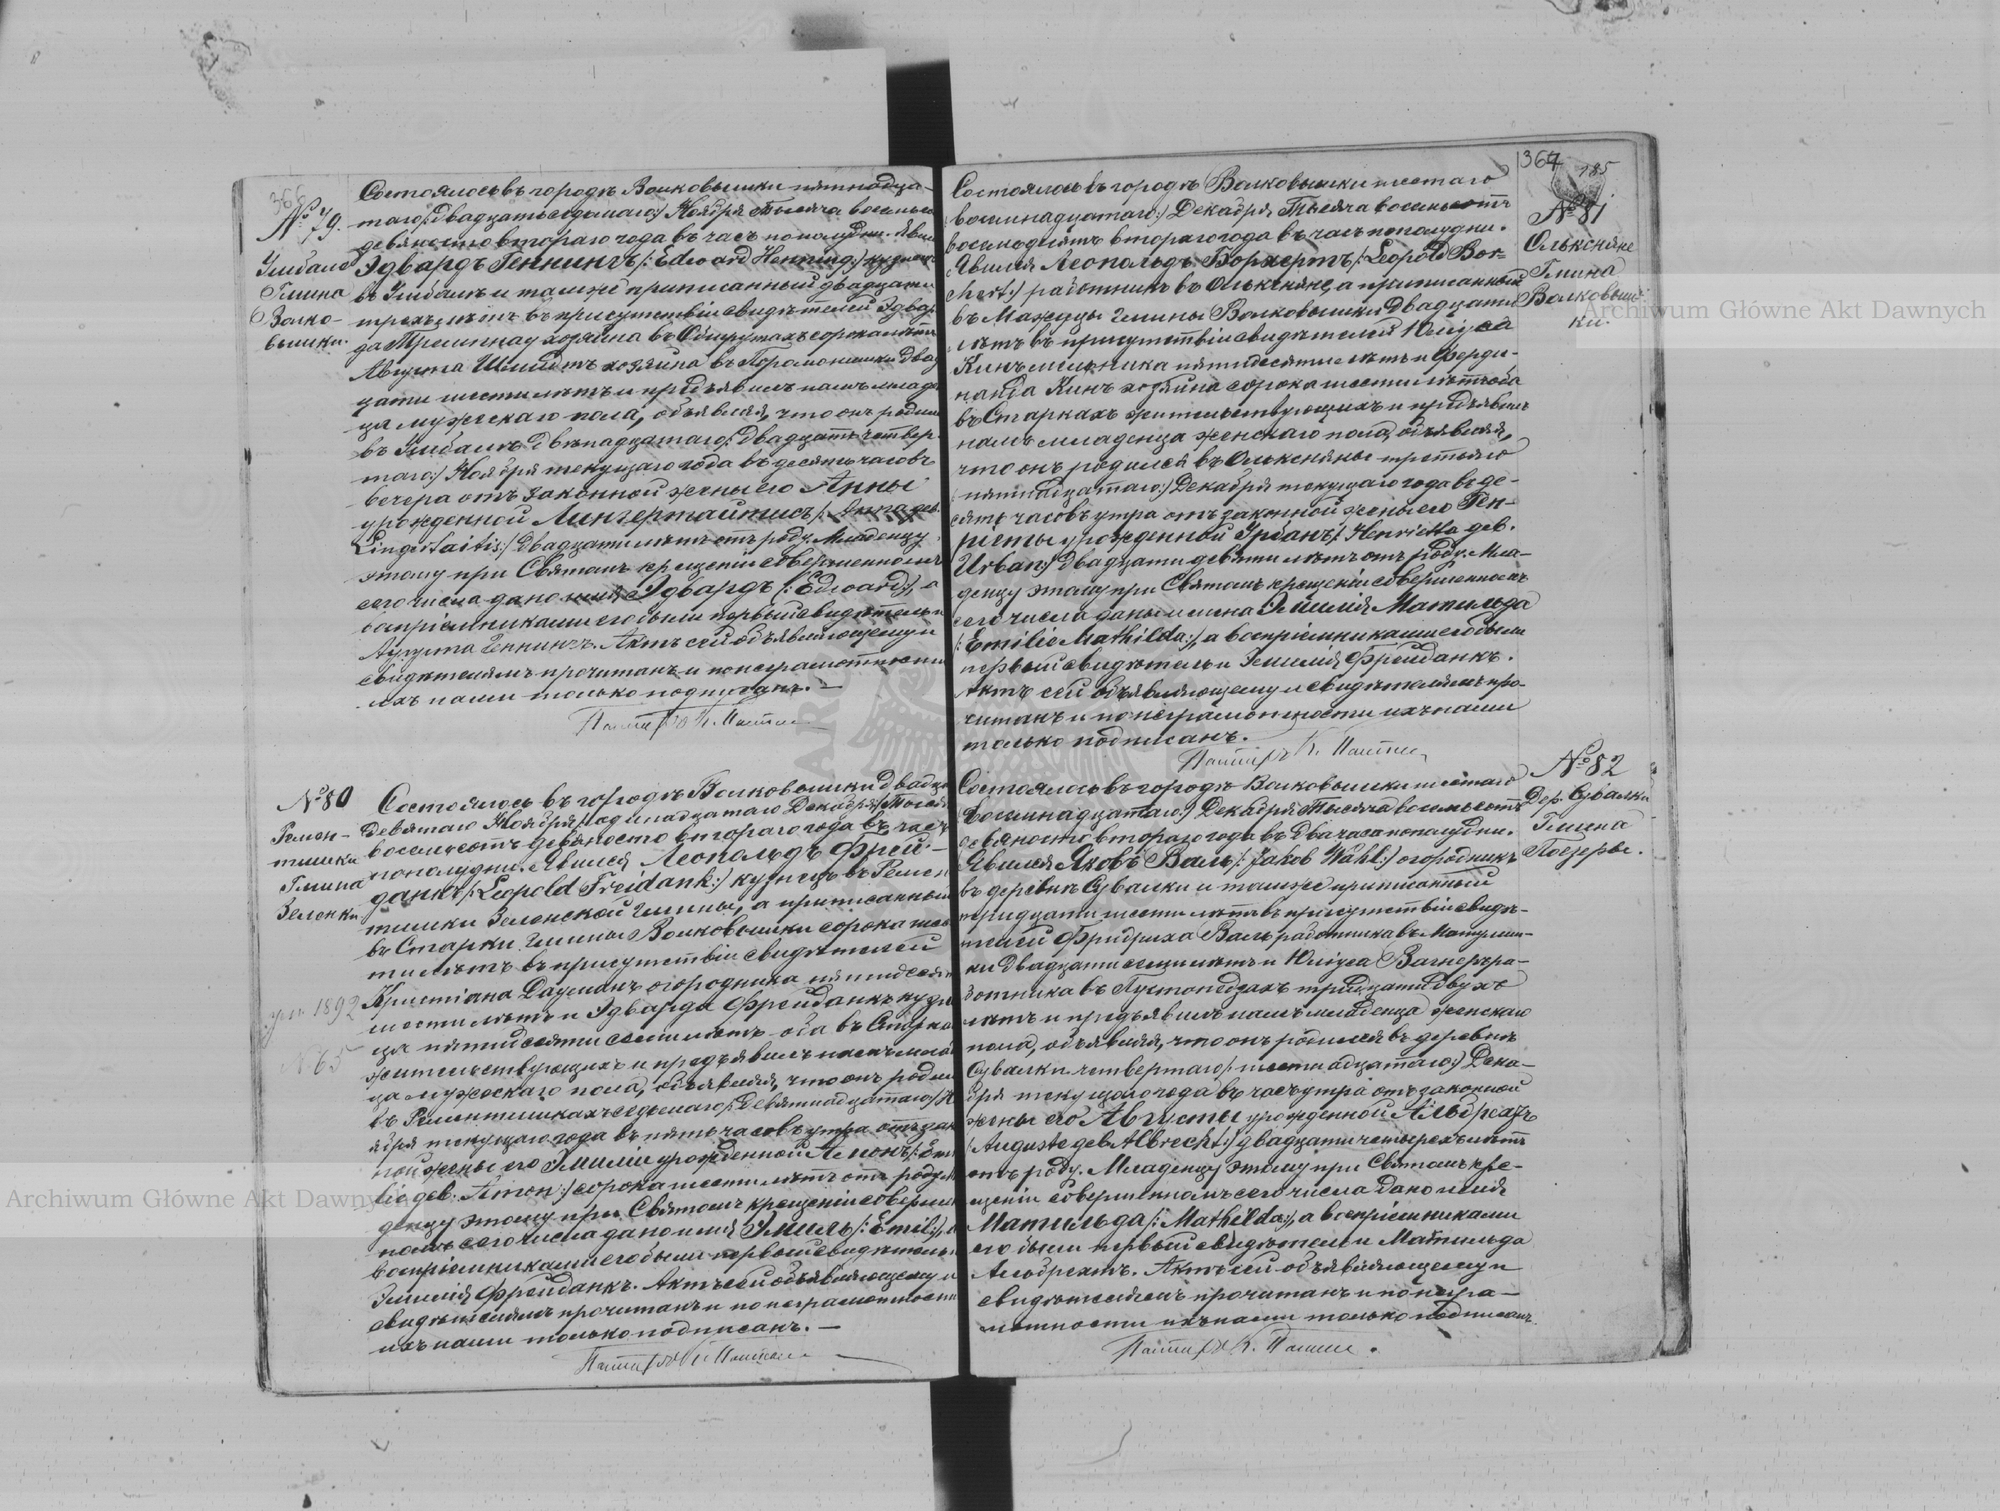 366
№ 79.
Гмина
Волко-
вышки.
Состоялось въ городѣ Волковышки пятнадца-
таго/двадцать седьмаго:/ Ноября тысяча восемьсо
девяносто втораго года въ часъ пополудни. Яви
Эдвардъ Геннингъ /:Edward Henning:/ кузнецъ
въ и тамже приписанный двадцати
трехъ лѣтъ въ присутствіи свидѣтелей Эдвар
да хозяина въ сорока лѣтъ
Августа Шмидтъ хозяина въ два
цати шести лѣтъ и предъявилъ намъ младен
ца мужескаго пола, объявляя, что онъ родил
въ двѣнадцатаго /:двадцать четвер
таго:/ Ноября текущаго года въ десять часовъ
вечера отъ законной жены его Анны
урожденной Лингертайтисъ /:Anna geb.
Lingertaitis:/ двадцати лѣтъ отъ роду. Младенцу
этому при Святомъ крещеніи совершенномъ
сего числа дано имя Эдвардъ /:Edward:/, а
воспріемниками его были первый свидѣтель и
Августа Геннингъ. Актъ сей объявляющему и
свидѣтелямъ прочитанъ и по неграмотности
ихъ нами только подписанъ. —
Пасторъ К.
№ 80
Гмина
Зеленки
1892
№ 65
Состоялось въ городѣ Волковышки двадца
девятаго Ноября /:одинадцатаго Декабря:/ тысяч
восемьсотъ девяносто втораго года въ часъ
пополудни. Явился Леопольдъ Фрей-
данкъ /:Leopold Freidank:/ кузнецъ въ Ремен
тишки Зеленской гмины, а приписанный
въ Старки гмины Волковышки сорока шес
ти лѣтъ въ присутствіи свидѣтелей
Христіана огородника пятидесяти
шести лѣтъ и Эдварда Фрейданкъ кузне
ца пятидесяти семи лѣтъ оба въ Старка
жительствующихъ и предъявилъ намъ младен
ца мужескаго пола, объявляя, что онъ родил
въ седьмаго /:девятнадцатаго:/ Но
ября текущаго года въ пять часовъ утра отъ закон
ной жены его Эмиліи урожденной Атонъ /:Emi
lie geb. Aton:/ сорока шести лѣтъ отъ роду. Мла
денцу этому при Святомъ крещеніи совершен
номъ сего числа дано имя Эмиль /:Emil:/, а
воспріемниками его были первый свидѣтель и
Эмилія Фрейданкъ. Актъ сей объявляющему и
свидѣтелямъ прочитанъ и по неграмотности
ихъ нами только подписанъ. —
Пасторъ К.
364
185
№ 81
Ольксняне
Гмина
Волковыш-
ки.
Состоялось въ городѣ Волковышки шестаго
/восемнадцатаго:/ Декабря тысяча восемьсотъ
втораго года въ часъ пополудни.
Явился Леопольдъ Борхертъ /:Leopold Bor-
chert:/ работникъ въ Ольксняне, а приписанный
въ гмины Волковышки двадцати
лѣтъ въ присутствіи свидѣтелей Юліуса
Кинъ мельника пятидесяти лѣтъ и Ферди-
нанда Кинъ хозяина сорока шести лѣтъ оба
въ Старкахъ жительствующихъ и предъявилъ
намъ младенца женскаго пола, объявляя,
что онъ родился въ Ольксняне третьяго
/пятнадцатаго:/ Декабря текущаго года въ де-
сять часовъ утра отъ законной жены его Ген-
ріеты урожденной Урбанъ /:Henrietta geb.
Urban:/ двадцати девяти лѣтъ отъ роду. Мла-
денцу этому при Святомъ крещеніи совершенномъ
сего числа даны имена Эмилія Матильда
/:Emilie Mathilda:/, а воспріемниками его были
первый свидѣтель и Эмилія Фрейданкъ.
Актъ сей объявляющему и свидѣтелямъ про-
читанъ и по неграмотности ихъ нами
только подписанъ.
Пасторъ К.
№ 82
Дер. Сувалки
Гмина
Поезеры.
Состоялось въ городѣ Волковышки шестаго
/восемнадцатаго:/ Декабря тысяча восемьсотъ
девяносто втораго года въ два часа пополудни.
Явился Яковъ Валь /:Jakob Wahl:/ огородникъ
въ деревнѣ Сувалки и тамже приписанный
тридцати шести лѣтъ въ присутствіи свидѣ-
телей Фридриха Валь работника въ
ки двадцати семи лѣтъ и Юліуса Вагнеръ ра-
ботника въ тридцати двухъ
лѣтъ и предъявилъ намъ младенца женскаго
пола, объявляя, что онъ родился въ деревнѣ
Сувалки четвертаго /:шестнадцатаго:/ Дека-
бря текущаго года въ часъ утра отъ законной
жены его Августы урожденной Альбрехтъ
/:Auguste geb. Albrecht:/ двадцати четырехъ лѣтъ
отъ роду. Младенцу этому при Святомъ кре-
щеніи совершенномъ сего числа дано имя
Матильда /:Mathilda:/, а воспріемниками
его были первый свидѣтель и Матильда
Альбрехтъ. Актъ сей объявляющему и
свидѣтелямъ прочитанъ и по негра-
мотности ихъ нами только подписанъ.
Пасторъ К.
Archiwum Główne Akt Dawnych
Archiwum Główne Akt Dawnych